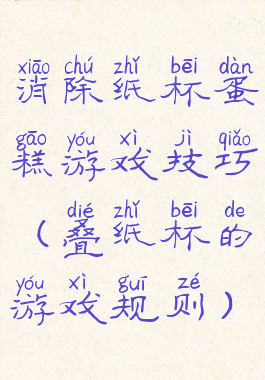 xiāo chú zhǐ bēi dàn
消除纸杯蛋
gāo yóu xì jì qiǎo
糕游戏技巧
dié zhǐ bēi de
（叠纸杯的
yóu xì guī zé
游戏规则）